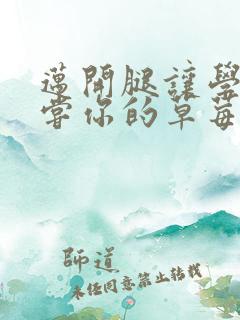 邁開腿讓學
嘗你的草莓
師道
未經同意禁止轉載